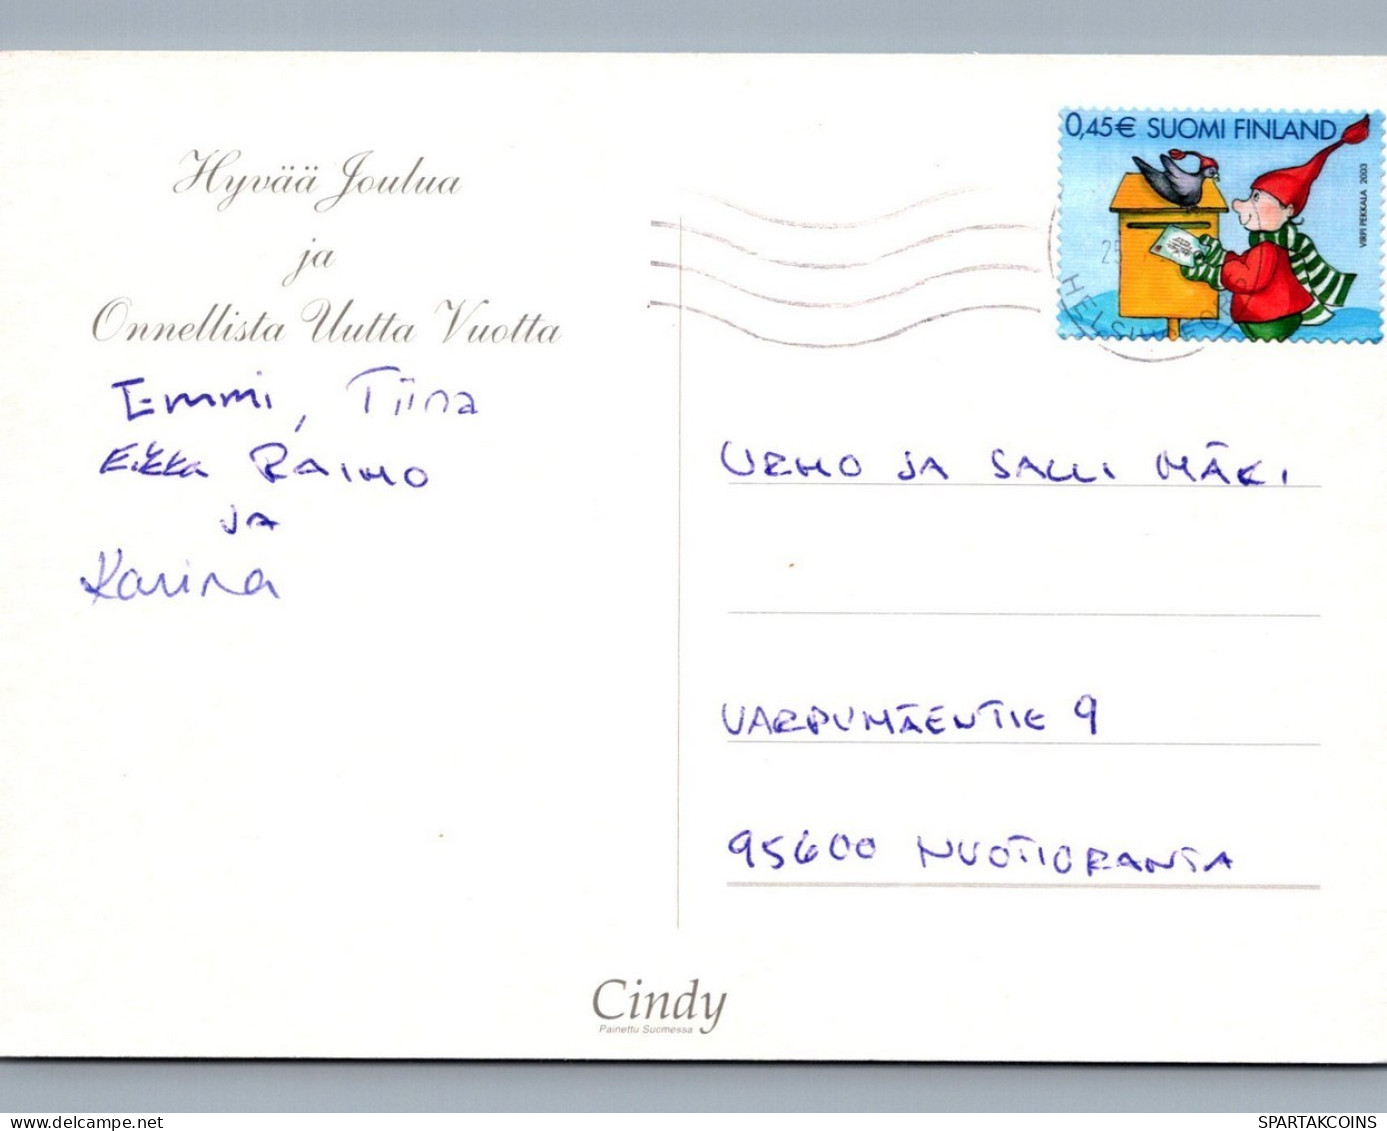 Hyvää Joulua
ja
Onnellista Uutta Vuotta
Emmi, Tiina
Raimo
ja
Karina
0,45€ SUOMI FINLAND
VIRPI PEKKALA 2003
URHO JA SALLI MÄKI
VARPUMÄENTIE 9
95600 NUOTIORANTA
Cindy
Painettu Suomessa
SPARTAKCOINS